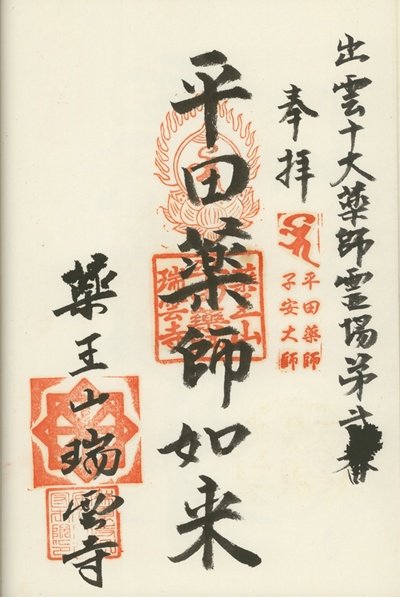 出雲十大薬師霊場第
奉拝
平田薬師
子安大師
平田薬師如来
薬王山
瑞雲寺
薬王山瑞雲寺